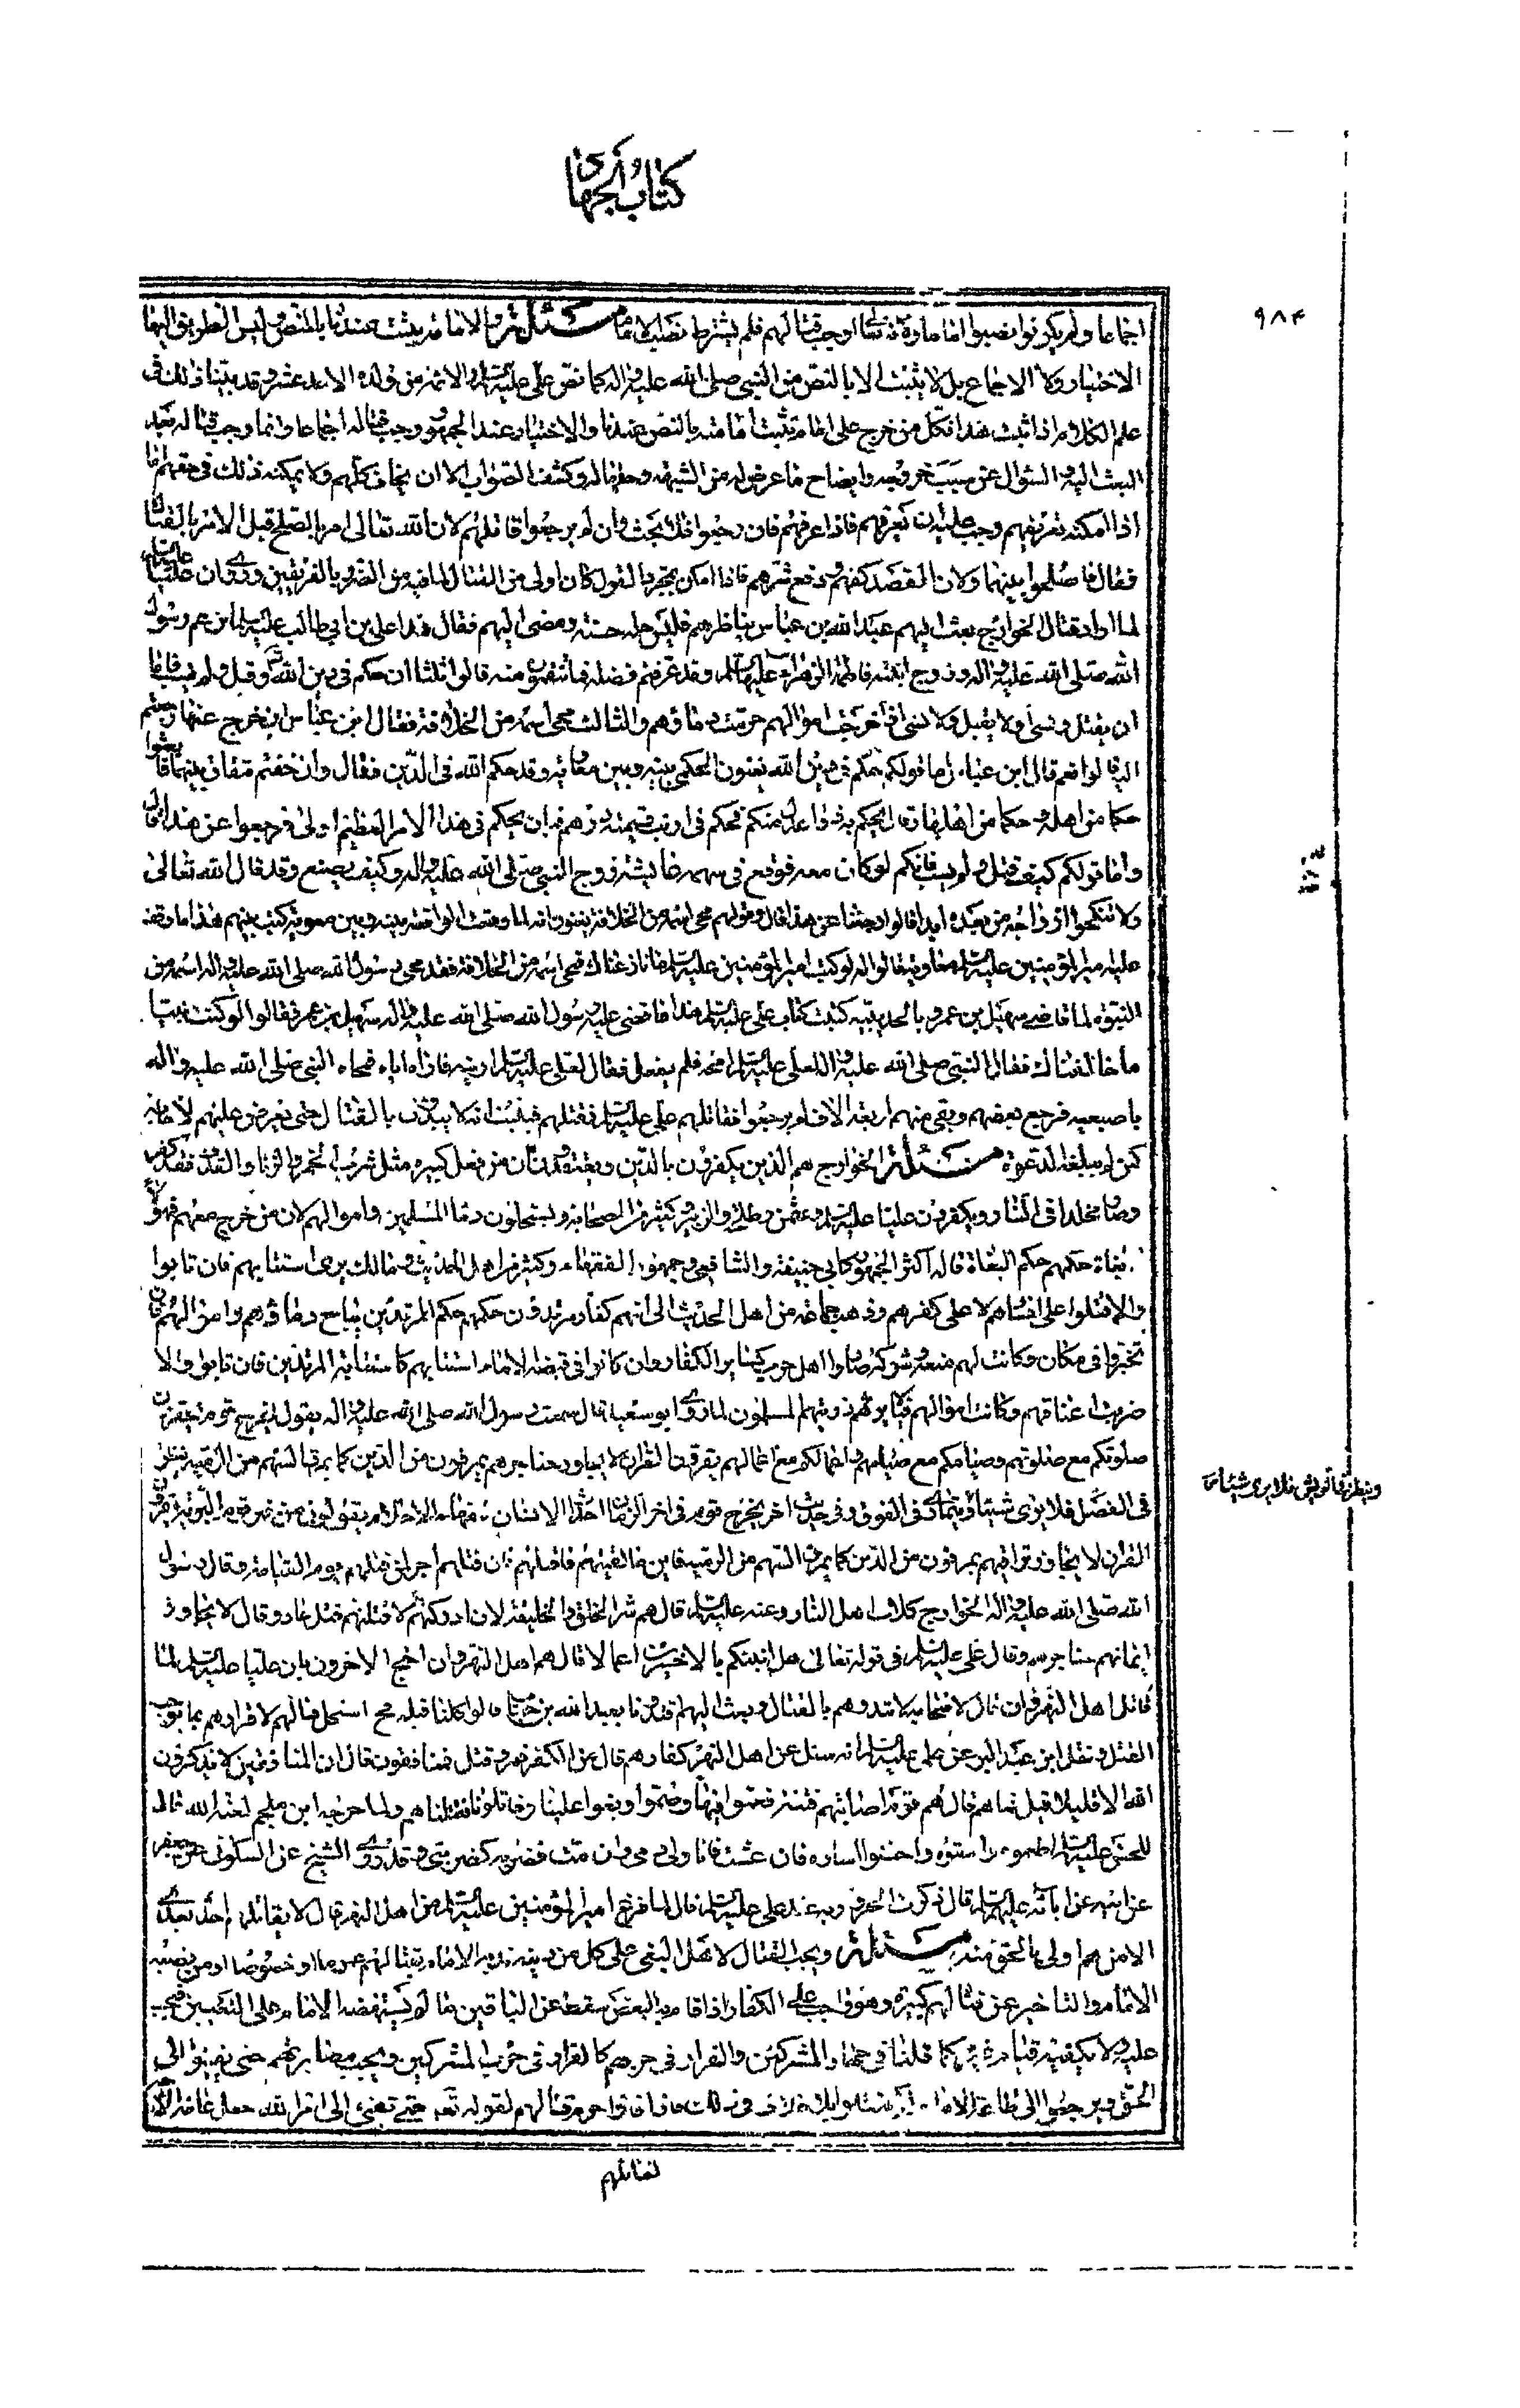 كتاب الجهاد
٩٨٤
اجماعا ولم يكونوا نصبوا اماما وقد اوجب قتالهم فلم يشترط نصب الامام مسئلة والامامة يثبت عندنا بالنص وليس الطريق اليها
الاختيار ولا الاجماع بل لا يثبت الا بالنص من النبي صلى الله عليه واله كما نص على علي عليه السلام والائمة من ولده الاحد عشر وقد بينا ذلك في
علم الكلام اذا ثبت هذا فكل من خرج على امام تثبت امامته بالنص عندنا والاختيار عند الجمهور وجب قتاله اجماعا وانما وجب قتاله بعد
البعث اليه والسؤال عن سبب خروجه وايضاح ما عرض له من الشبهة وحلها له وكشف الصواب الا ان يخاف كلبهم ولا يمكنه ذلك في حقهم اما
اذا امكنه تعريفهم وجب عليه ان يعرفهم فاذا عرفهم فان رجعوا فلا بحث وان لم يرجعوا قاتلهم لان الله تعالى امر بالصلح قبل الامر بالقتال
فقال فاصلحوا بينهما ولان القصد كفهم ودفع شرهم فاذا امكن بمجرد القول كان اولى من القتال لما فيه من الضرر بالفريقين وروى ان عليا عليه السلام
لما اراد قتال الخوارج بعث اليهم عبد الله بن عباس يناظرهم فلبس حلة حسنة ومضى اليهم فقال هذا علي بن ابي طالب عليه السلام ابن عم رسول
الله صلى الله عليه واله وزوج ابنته فاطمة الزهراء عليها السلام وقد عرفتم فضله فما تنقمون منه قالوا ثلثا انه حكم في دين الله وقتل ولم يسب فاما
ان يقتل ويسبي او لا يقتل ولا يسبي اذا حرمت اموالهم حرمت دماؤهم والثالث محى اسمه من الخلافة فقال ابن عباس ان خرج عنها رجعتم
اليه قالوا نعم قال ابن عباس اما قولكم حكم في دين الله تعنون الحكمين بينه وبين معاوية وقد حكم الله في الدين فقال وان خفتم شقاق بينهما فابعثوا
حكما من اهله وحكما من اهلها وقال يحكم به ذوا عدل منكم فحكم في ارنب قيمته درهم فبان يحكم في هذا الامر العظيم اولى فرجعوا عن هذا قال
واما قولكم كيف قتل ولم يسب فايكم لو كان معه فوقع في سهمه عايشة زوج النبي صلى الله عليه واله وكيف يصنع وقد قال الله تعالى
ولا تنكحوا ازواجه من بعده ابدا قالوا رجعنا عن هذا قال وقولهم محى اسمه من الخلافة تعنون انه لما وقعت المواقفة بينه وبين معوية كتب بينهم هذا ما وقف
عليه امير المؤمنين عليه السلام معاوية قالوا له لو كنت امير المؤمنين عليه السلام ما نازعناك فمحى اسمه من الخلافة فقد محى رسول الله صلى الله عليه واله اسمه من
النبوة لما قاضى سهيل بن عمرو بالحديبية كتب الكتاب علي عليه السلام هذا ما قضى عليه رسول الله صلى الله عليه واله سهيل بن عمرو فقالوا لو كنت نبيا
ما خالفناك فقال النبي صلى الله عليه واله لعلي عليه السلام امحه فلم يفعل فقال لعلي عليه السلام ارنيه فاراه اياه فمحاه النبي صلى الله عليه واله
باصبعيه فرجع بعضهم وبقي منهم اربعة الاف لم يرجعوا فقاتلهم علي عليه السلام فقتلهم فيثبت انه لا يبتدؤن بالقتال حتى يعرض عليهم الاجابة
كمن لم يبلغه الدعوة مسئلة الخوارج هم الذين يكفرون بالذنب ويعتقدون ان من فعل كبيرة مثل شرب الخمر والزنا والقذف فقد كفر
وصار مخلدا في النار ويكفرون عليا عليه السلام وعثمن وطلحة والزبير وكثير من الصحابة ويستحلون دماء المسلمين واموالهم الا من خرج معهم فهؤلاء
بغاة حكمهم حكم البغاة قاله اكثر الجمهور كابي حنيفة والشافعي وجمهور الفقهاء وكثير من اهل الحديث ومالك يرى استتابتهم فان تابوا
والا قتلوا على افسادهم لا على كفرهم وذهب جماعة من اهل الحديث الى انهم كفار مرتدون حكمهم حكم المرتدين يباح دماؤهم واموالهم فان
تحيزوا في مكان وكانت لهم منعة وشوكة صاروا اهل حرب كساير الكفار وان كانوا في قبضة الامام استتابهم كاستتابة المرتدين فان تابوا والا
ضربت اعناقهم وكانت اموالهم فيئا يرثهم ورثتهم المسلمون لما روى ابو سعيد قال سمعت رسول الله صلى الله عليه واله يقول يخرج قوم تحقرون
صلوتكم مع صلوتهم وصيامكم مع صيامهم واعمالكم مع اعمالهم يقرؤن القران لا يجاوز حناجرهم يمرقون من الدين كما يمرق السهم من الرمية ينظر
في النصل فلا يرى شيئا ويتمارى في الفوق وفي حديث اخر يخرج قوم في اخر الزمان احداث الاسنان سفهاء الاحلام يقولون من خير قول البرية يقرؤن
القران لا يجاوز تراقيهم يمرقون من الدين كما يمرق السهم من الرمية فاين لقيتهم فاقتلهم فان قتلهم اجر لمن قتلهم يوم القيامة وقال رسول
الله صلى الله عليه واله الخوارج كلاب اهل النار وعنه عليه السلام قال هم شر الخلق والخليقة لان ادركتهم لاقتلنهم قتل عاد وقال لا يجاوز
ايمانهم حناجرهم وقال علي عليه السلام في قوله تعالى هل انبئكم بالاخسرين اعمالا قال هم اهل النهروان احتج الاخرون بان عليا عليه السلام لما
قاتل اهل النهروان قال لاصحابه لا تبدؤهم بالقتال وبعث اليهم اقيدونا بعبد الله بن خباب قالوا كلنا قتله فح استحل قتالهم لاقرارهم بما يوجب
القتل ونقل ابن عبد البر عن علي عليه السلام انه سئل عن اهل النهر اكفار هم قال من الكفر فروا قيل فمنافقون قال ان المنافقين لا يذكرون
الله الا قليلا قيل فما هم قال هم قوم اصابتهم فتنة فعموا فيها وصموا وبغوا علينا وقاتلونا فقتلناهم ولما جرحه ابن ملجم لعنه الله قال
للحسن عليه السلام اطعموه واسقوه واحسنوا اساره فان عشت فانا ولي دمي وان مت فضربة كضربتي وقد روى الشيخ عن السكوني عن جعفر
عن ابيه عن آبائه عليهم السلام قال ذكرت الحرورية عند علي عليه السلام قال لما فرغ امير المؤمنين عليه السلام من اهل النهر قال لا يقاتلهم احد بعدي
الا من هم اولى بالحق منه مسئلة ويجب القتال لاهل البغي على كل من يندبه الامام بقتالهم عموما او خصوصا او من نصبه
الامام والتاخير عن قتالهم كبيرة وهو واجب على الكفاية اذا قام به البعض سقط عن الباقين ما لم يستنهضه الامام على التعيين فيجب
عليه ولا يكفيه قيام غيره كما قلنا في جهاد المشركين والفرار في حربهم كالفرار في حرب المشركين ويجب مصابرتهم حتى يفيئوا الى
الحق ويرجعوا الى طاعة الامام فاذا فاؤا حرم قتالهم لقوله تعالى حتى تفيئ الى امر الله جعل غاية الامر
لقتالهم
وينظر في القدح فلا يرى شيئا